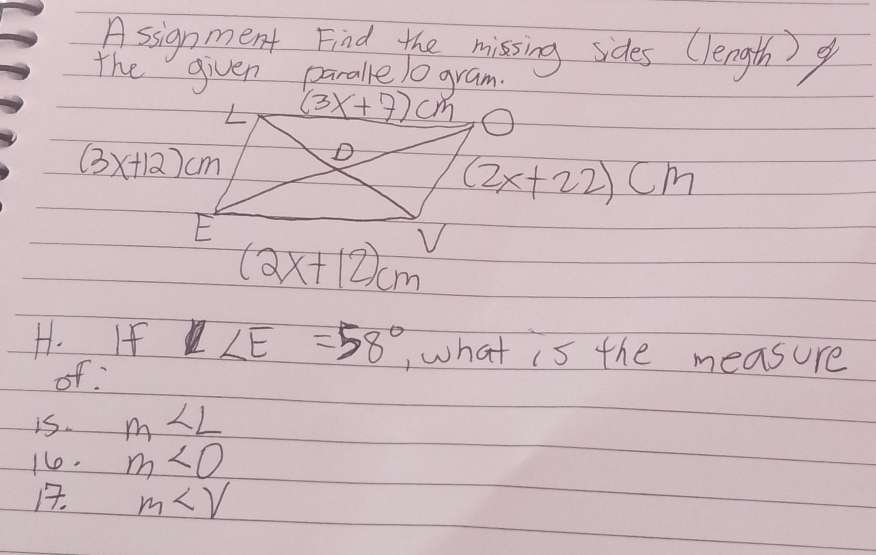 Assignment Find the missing sides (length) of
the given parallelogram.
(3x+7)cm
L O
D
(3x+12)cm (2x+22) cm
E V
(2x+12)cm
H. If ∠E = 58°, what is the measure
of:
15. m <L
16. m <O
17. m <V